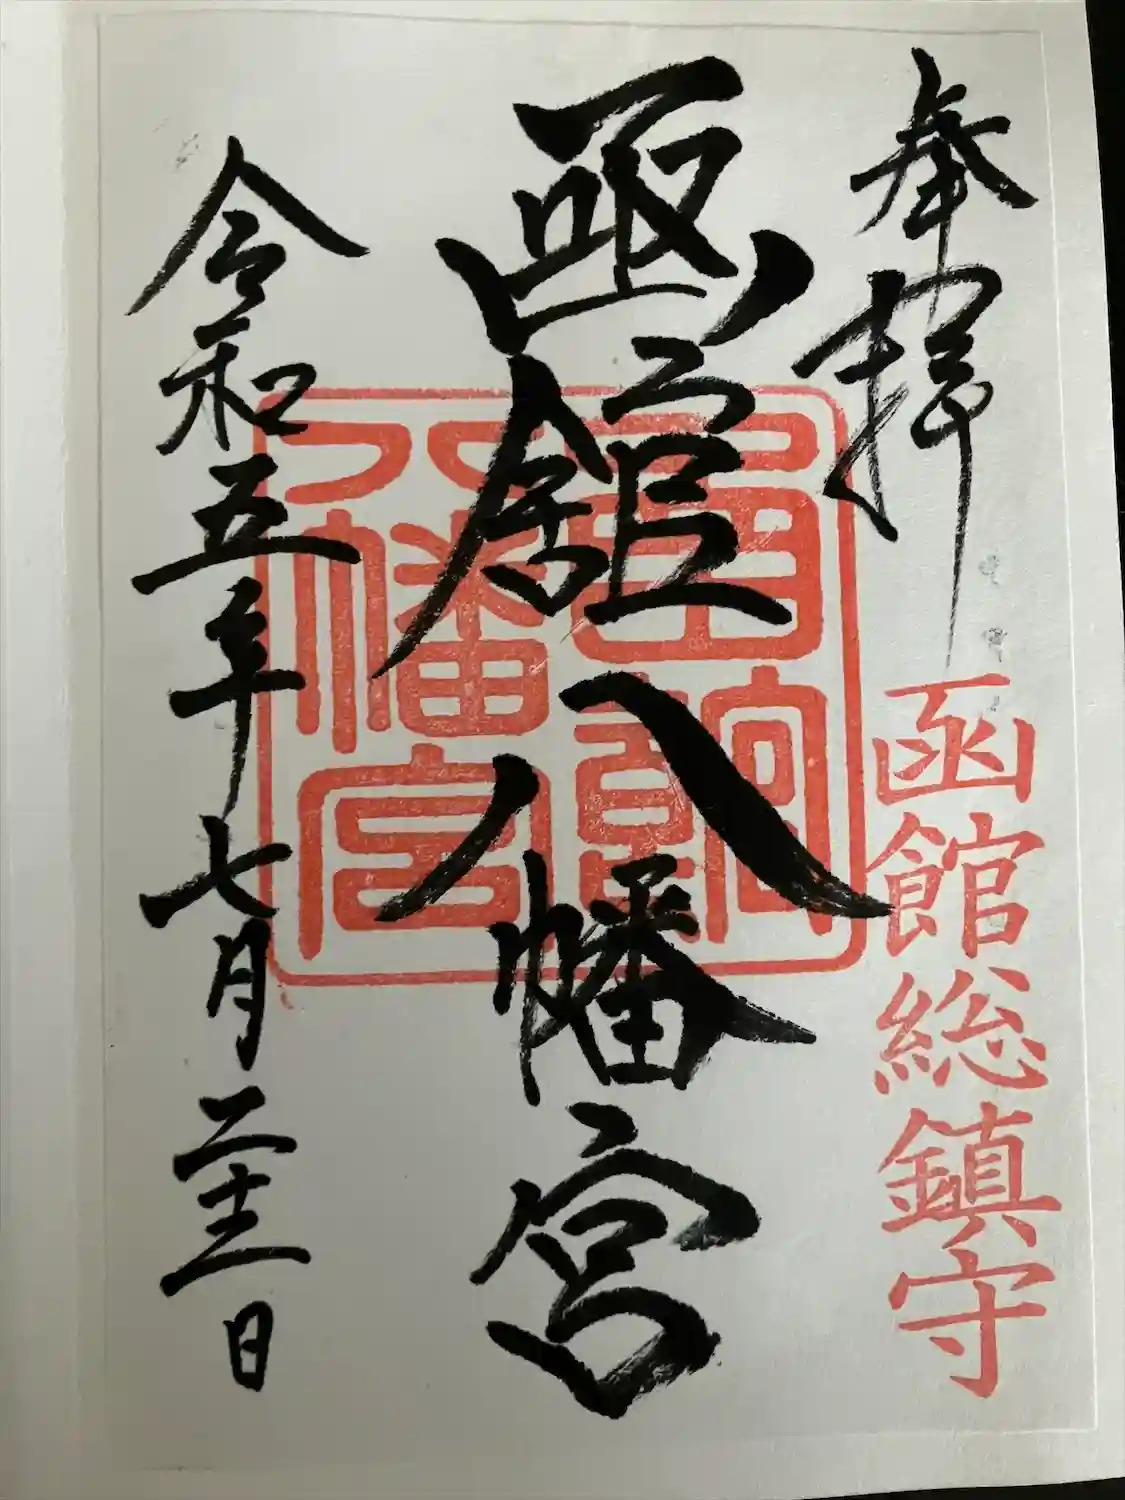 奉拝
函館総鎮守
函館八幡宮
函館
八幡宮
令和五年七月二十二日